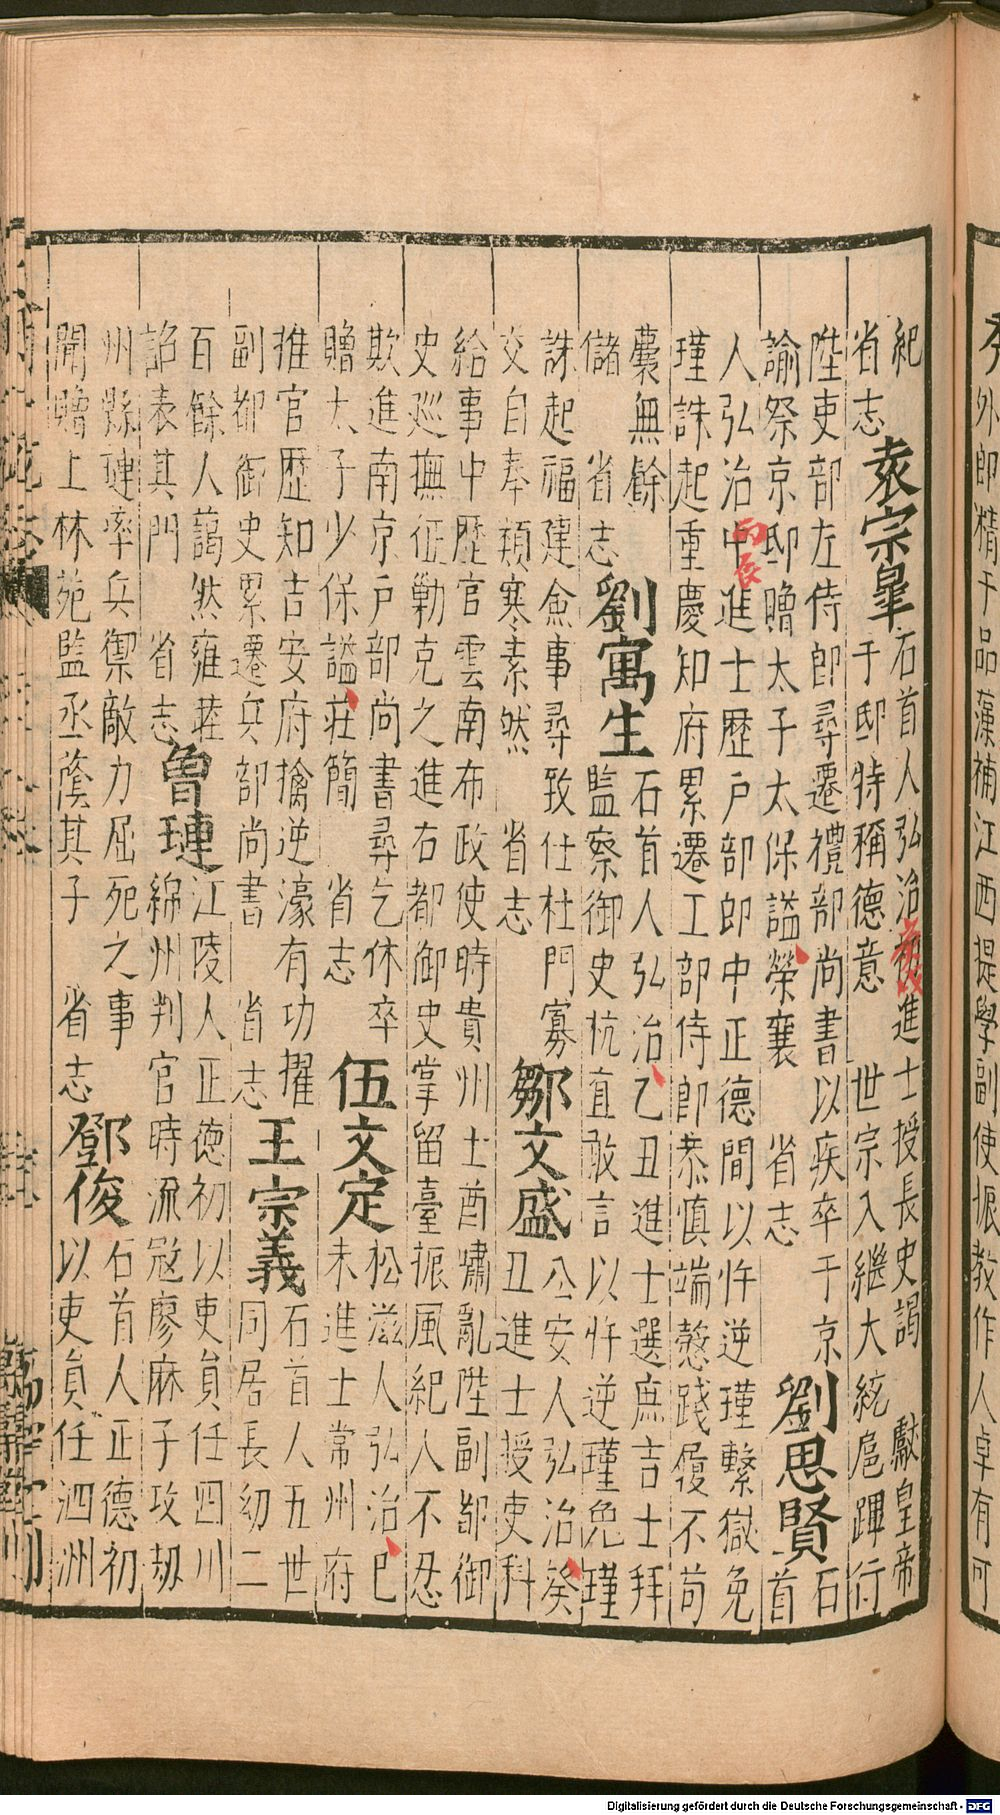 外郎精于品藻補江西提學副使振教作人卓有可
紀
省志
袁宗皐
石首人弘治初進士授長史謁 獻皇帝
庚戌
于邸特稱德意 世宗入繼大統扈蹕行
陞吏部左侍郎尋遷禮部尚書以疾卒于京
諭祭京邸贈太子太保謚榮襄 省志
劉思賢
石
首
人弘治中進士歷戶部郎中正德間以忤逆瑾繫獄免
丙辰
瑾誅起重慶知府累遷工部侍郎恭慎端愨踐履不苟
囊無餘
儲 省志
劉寓生
石首人弘治乙丑進士選庶吉士拜
監察御史杭直敢言以忤逆瑾免瑾
誅起福建僉事尋致仕杜門寡
交自奉頹寒素然 省志
鄒文盛
公安人弘治癸
丑進士授吏科
給事中歷官雲南布政使時貴州土酋嘯亂陞副都御
史巡撫征勦克之進右都御史掌留臺振風紀人不忍
欺進南京戶部尚書尋乞休卒
贈太子少保謚莊簡 省志
伍文定
松滋人弘治己
未進士常州府
推官歷知吉安府擒逆濠有功擢
副都御史累遷兵部尚書 省志
王宗義
石首人五世
同居長幼二
百餘人藹然雍睦
詔表其門 省志
魯璉
江陵人正德初以吏員任四川
綿州判官時流冦廖麻子攻刼
州縣璉率兵禦敵力屈死之事
聞贈上林苑監丞蔭其子 省志
鄧俊
石首人正德初
以吏員任泗州
Digitalisierung gefördert durch die Deutsche Forschungsgemeinschaft - DFG